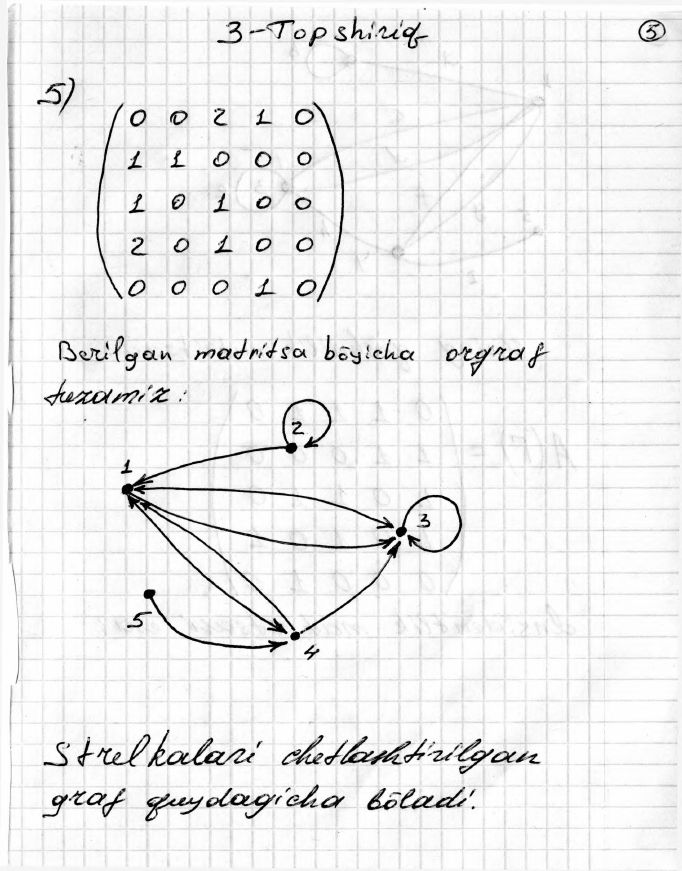 3-Topshiriq
5
5)
0 0 2 1 0
1 1 0 0 0
1 0 1 0 0
2 0 1 0 0
0 0 0 1 0
Berilgan matritsa bõyicha orgraf
tuzamiz:
2
1
3
5
4
Strelkalari chetlashtirilgan
graf quydagicha bõladi.